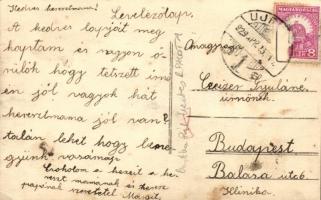 Kedves keresztmama!
Levelezőlap.
A kedves lapját meg
kaptam és nagyon ö-
rülök hogy tetszett ind
en jól vagyok hát
keresztmama jól van?
talán lehet hogy be me
gyünk vasárnap.
Csókolom a kezeit a ke
reszt mamának és keresz
papának szeretettel Margit.
UJP
929
MAGYARORSZÁG
8
Nagysás
Gyuláné
úrnőnek.
Budapest
Balassa utca 6
Klinika